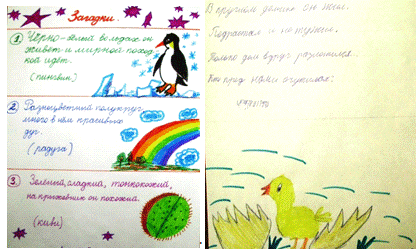 Загадки.
1 Чёрно-белый во льдах он
живёт и мирной поход
кой идёт.
(пингвин)
2 Разноцветный полукруг
много в нём красивых
дуг.
(радуга)
3 Зелёный, сладкий, тонкокожий,
на крыжовник он похожий.
(киви)
В круглом домике он жил.
Подрастал и не тужил.
Только дом вдруг развалился.
Кто пред нами очутился?